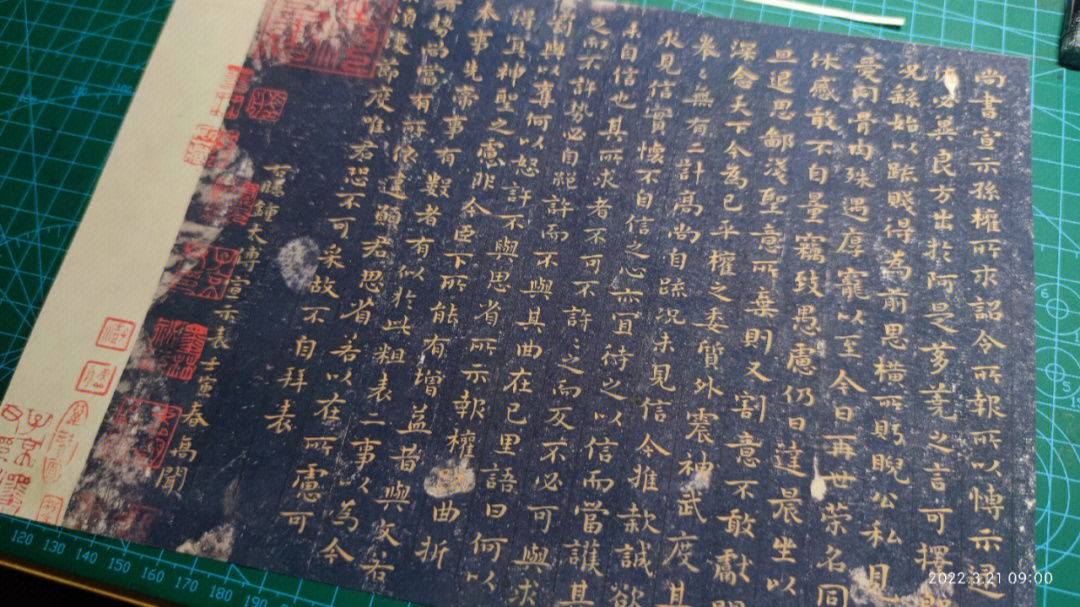 尚書宣示孫權所求詔令所報所以博示逮
佐必冀良方出於阿是芻蕘之言可擇
況繇始以疏賤得為前恩橫所眄睨公私見
愛同骨肉殊遇厚寵以至今日再世榮名同
休慼敢不自量竊致愚慮仍日達晨坐以
旦退思鄙淺聖意所棄則又割意不敢獻聞
深念天下今為已平權之委質外震神武度其
拳〻無有二計高尚自疏況未見信今推款誠欲
求見信實懷不自信之心亦宜待之以信而當護其
未自信也其所求者不可不許〻之而反不必可與求
之而不許勢必自絕許而不與其曲在已里語曰何以
罰與以奪何以怒許不與思省所示報權疏曲折
得宜神聖之慮非今臣下所能有增益昔與文若
奉事先帝事有數者有似於此粗表二事以為今
者事勢尚當有所依違願君思省若以在所慮可
不須復節度唯君恐不可采故不自拜表
臨鍾太傅宣示表壬寅春高聞
120 130 140 150 160 170 180 190
2022.3.21 09:00